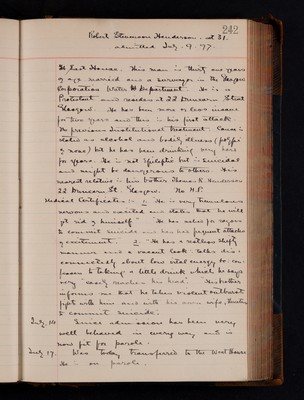 242
Robert Stevenson Henderson. at 31.
admitted July. 9. 97.
East House. This man is thirty one years
of age married and a surveyor in the Glasgow
Corporation Water Department. He is a
Protestant and resides at 22 Duncairn Street
Glasgow. He has been more or less insane
for two years and this is his first attack
No previous Institutional Treatment. Cause is
stated as alcohol and bodily illness (
of nose) but he has been drinking very hard
for years. He is not Epileptic but is Suicidal
and might be dangerous to others. His
nearest relative is his brother Thomas R. Henderson
22 Duncairn St. Glasgow. No H.P.
Medical Certificates:- 1. He is very tremulous
nervous and excited and states that he will
get rid of himself. He has asked for razors
to commit suicide and has had frequent attacks
of excitement. 2. He has a restless shifty
manner and a vacant look. Talks dis-
connectedly about low vital energy &c con-
fesses to taking a little drink which he says
very easily reaches his head. His brother
informs me that he takes violent outbursts
fights with him and with his own wife, threatens
to commit suicide.
July. 14. Since admission has been very
well behaved in every way and is
now fit for parole.
July 17. Was today transferred to the West House
He is on parole.